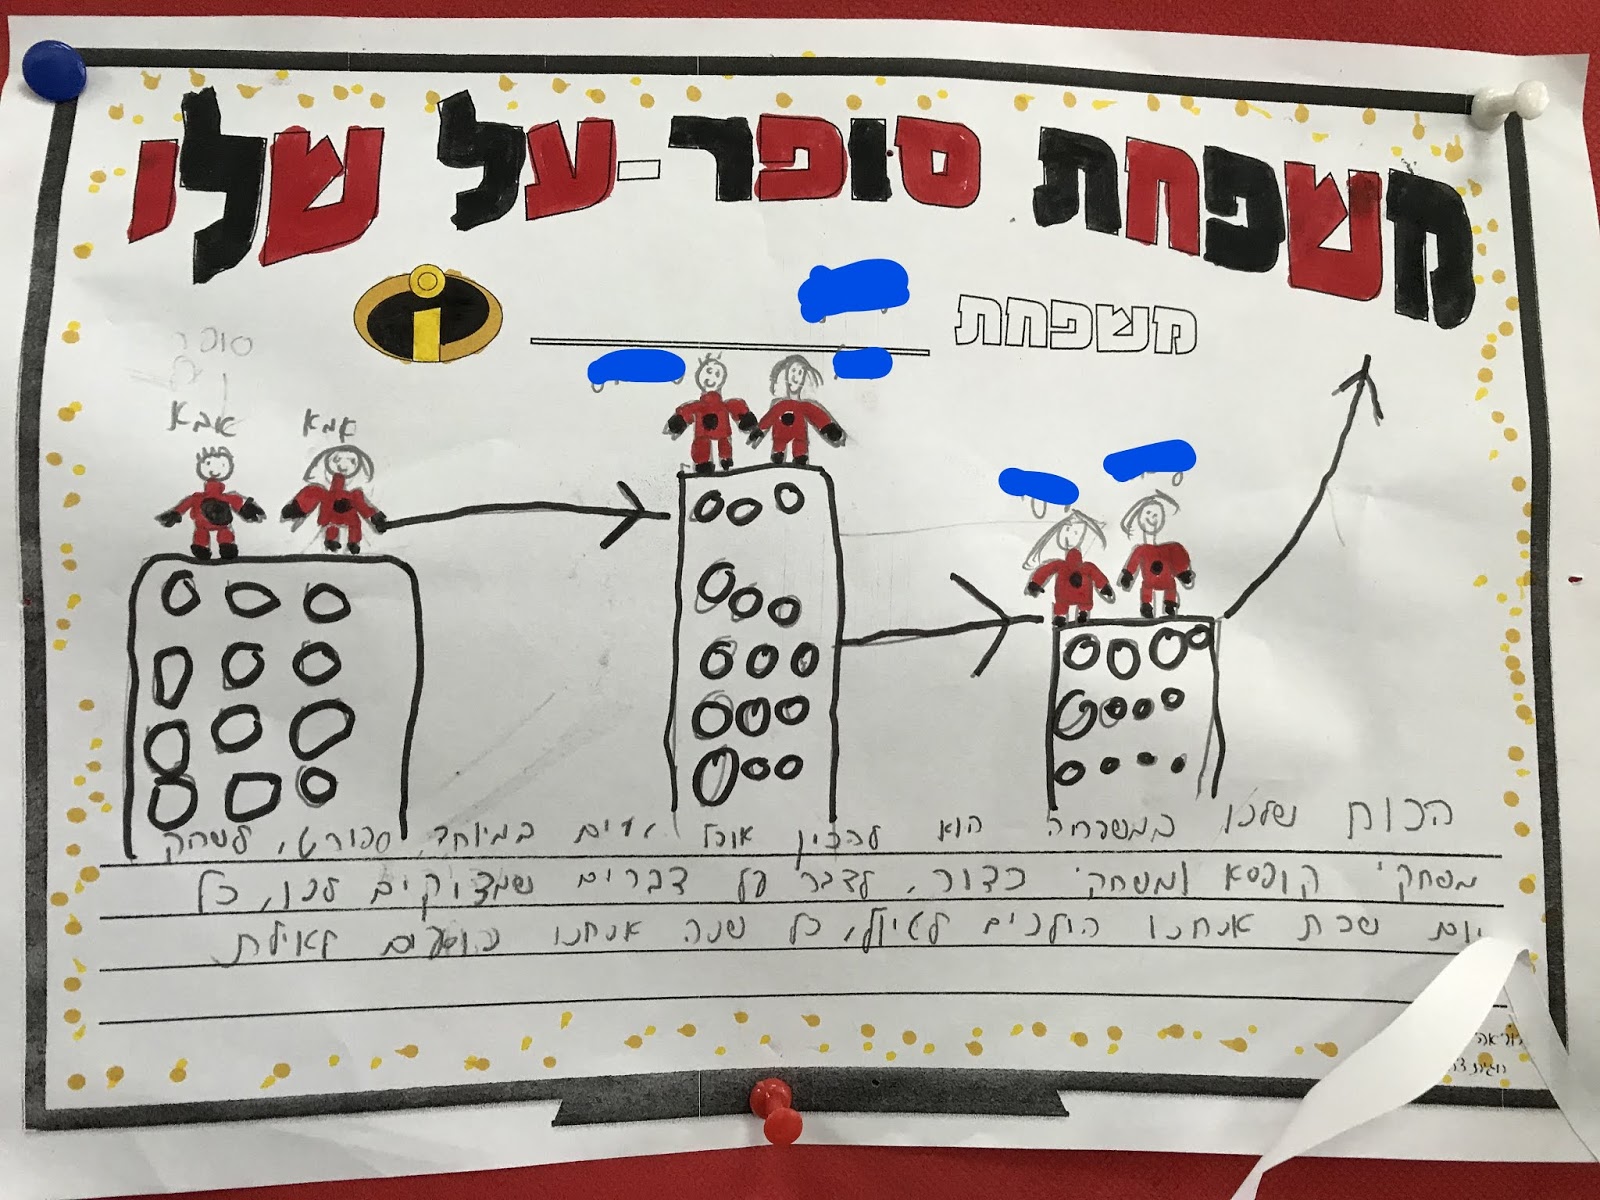 משפחת סופר-על שלי
משפחת
סופר
אבא אמא
הכוח שלנו במשפחה הוא להכין אוכל טעים במיוחד, ספורט, לשחק
משחקי קופסא ומשחקי כדור, לדבר על דברים שמציקים לנו, כל
יום שבת אנחנו הולכים לטיול, כל שנה אנחנו נוסעים לאילת.